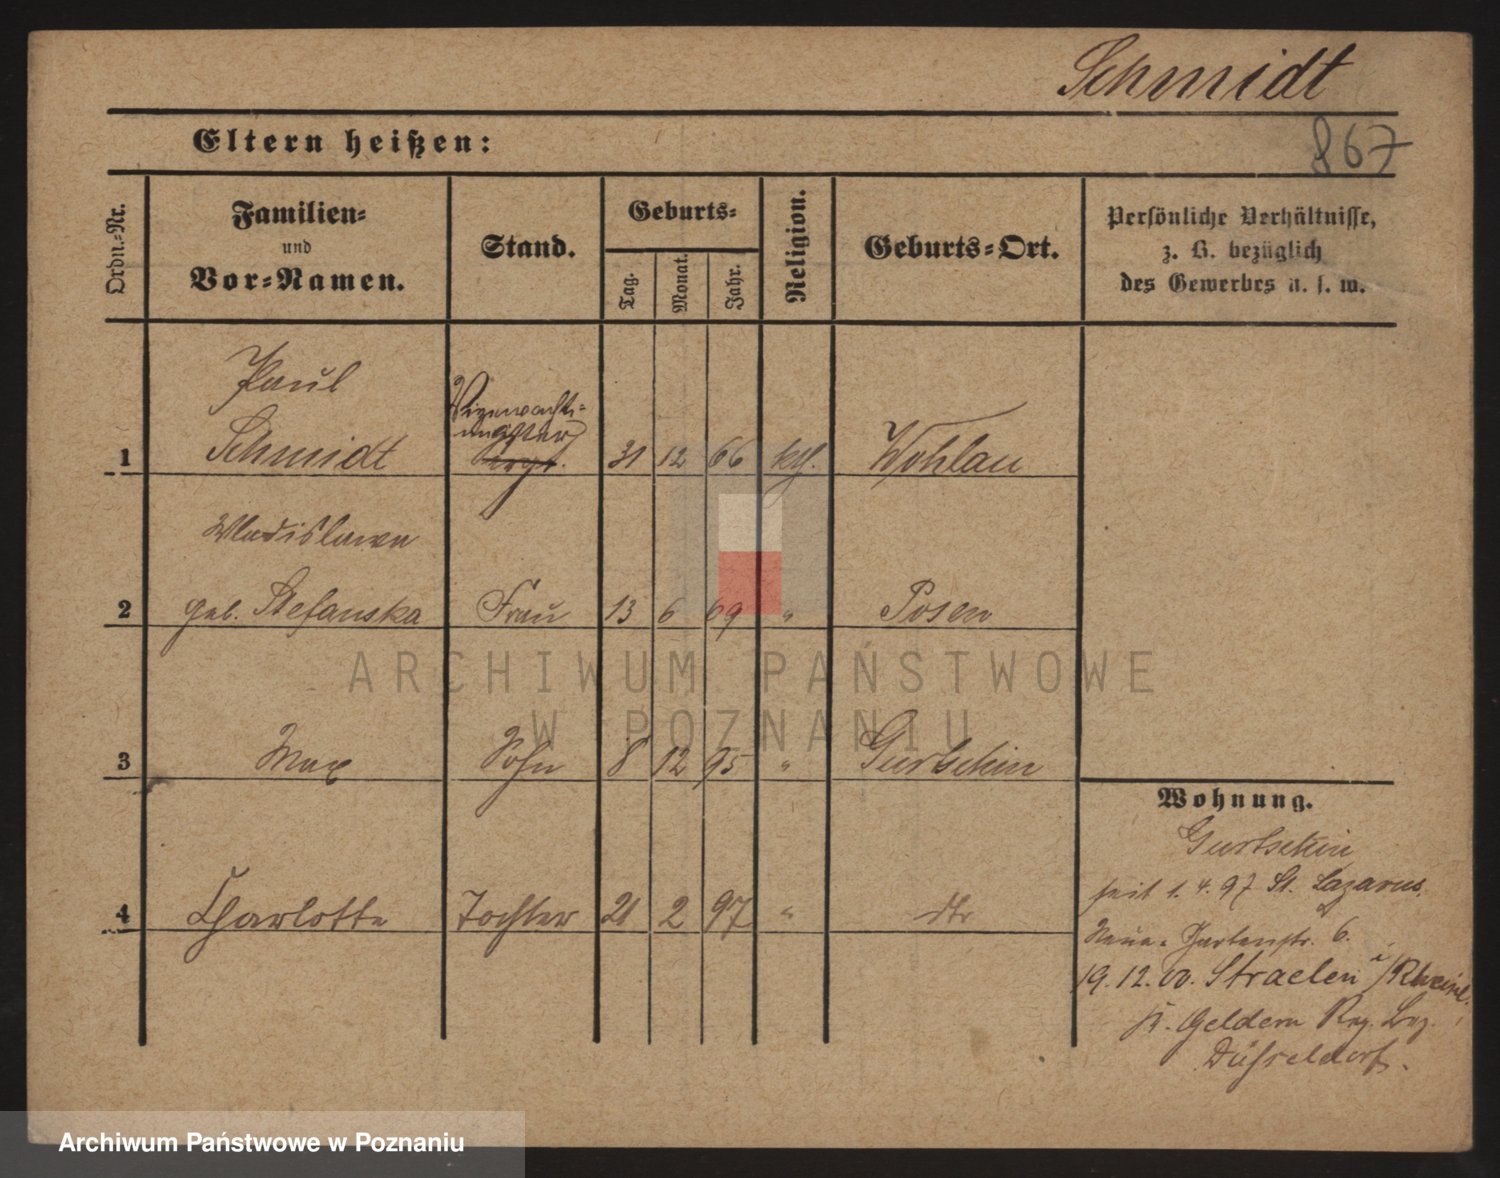 Schmidt
867
Eltern heißen:
Ordn.-Nr.
Familien-
und
Vor-Namen.
Stand.
Geburts-
Tag.
Monat.
Jahr.
Religion.
Geburts-Ort.
Persönliche Verhältnisse,
z. B. bezüglich
des Gewerbes u. s. w.
Paul
Vizewacht-
meister
1 Schmidt Sergt. 31 12 66 kth. Wohlau
Wladislawa
2 geb. Stefanska Frau 13 6 69 " Posen
3 Max Sohn 8 12 95 " Gurtschin
Wohnung.
Gurtschin
seit 1. 4. 97 St. Lazarus
4 Charlotte Tochter 21 2 97 " dto
Neue Gartenstr. 6.
19. 12. 00. Straelen i/Rheinl.
Kr. Geldern Reg. Bez.
Düsseldorf.
ARCHIWUM PAŃSTWOWE
W POZNANIU
Archiwum Państwowe w Poznaniu